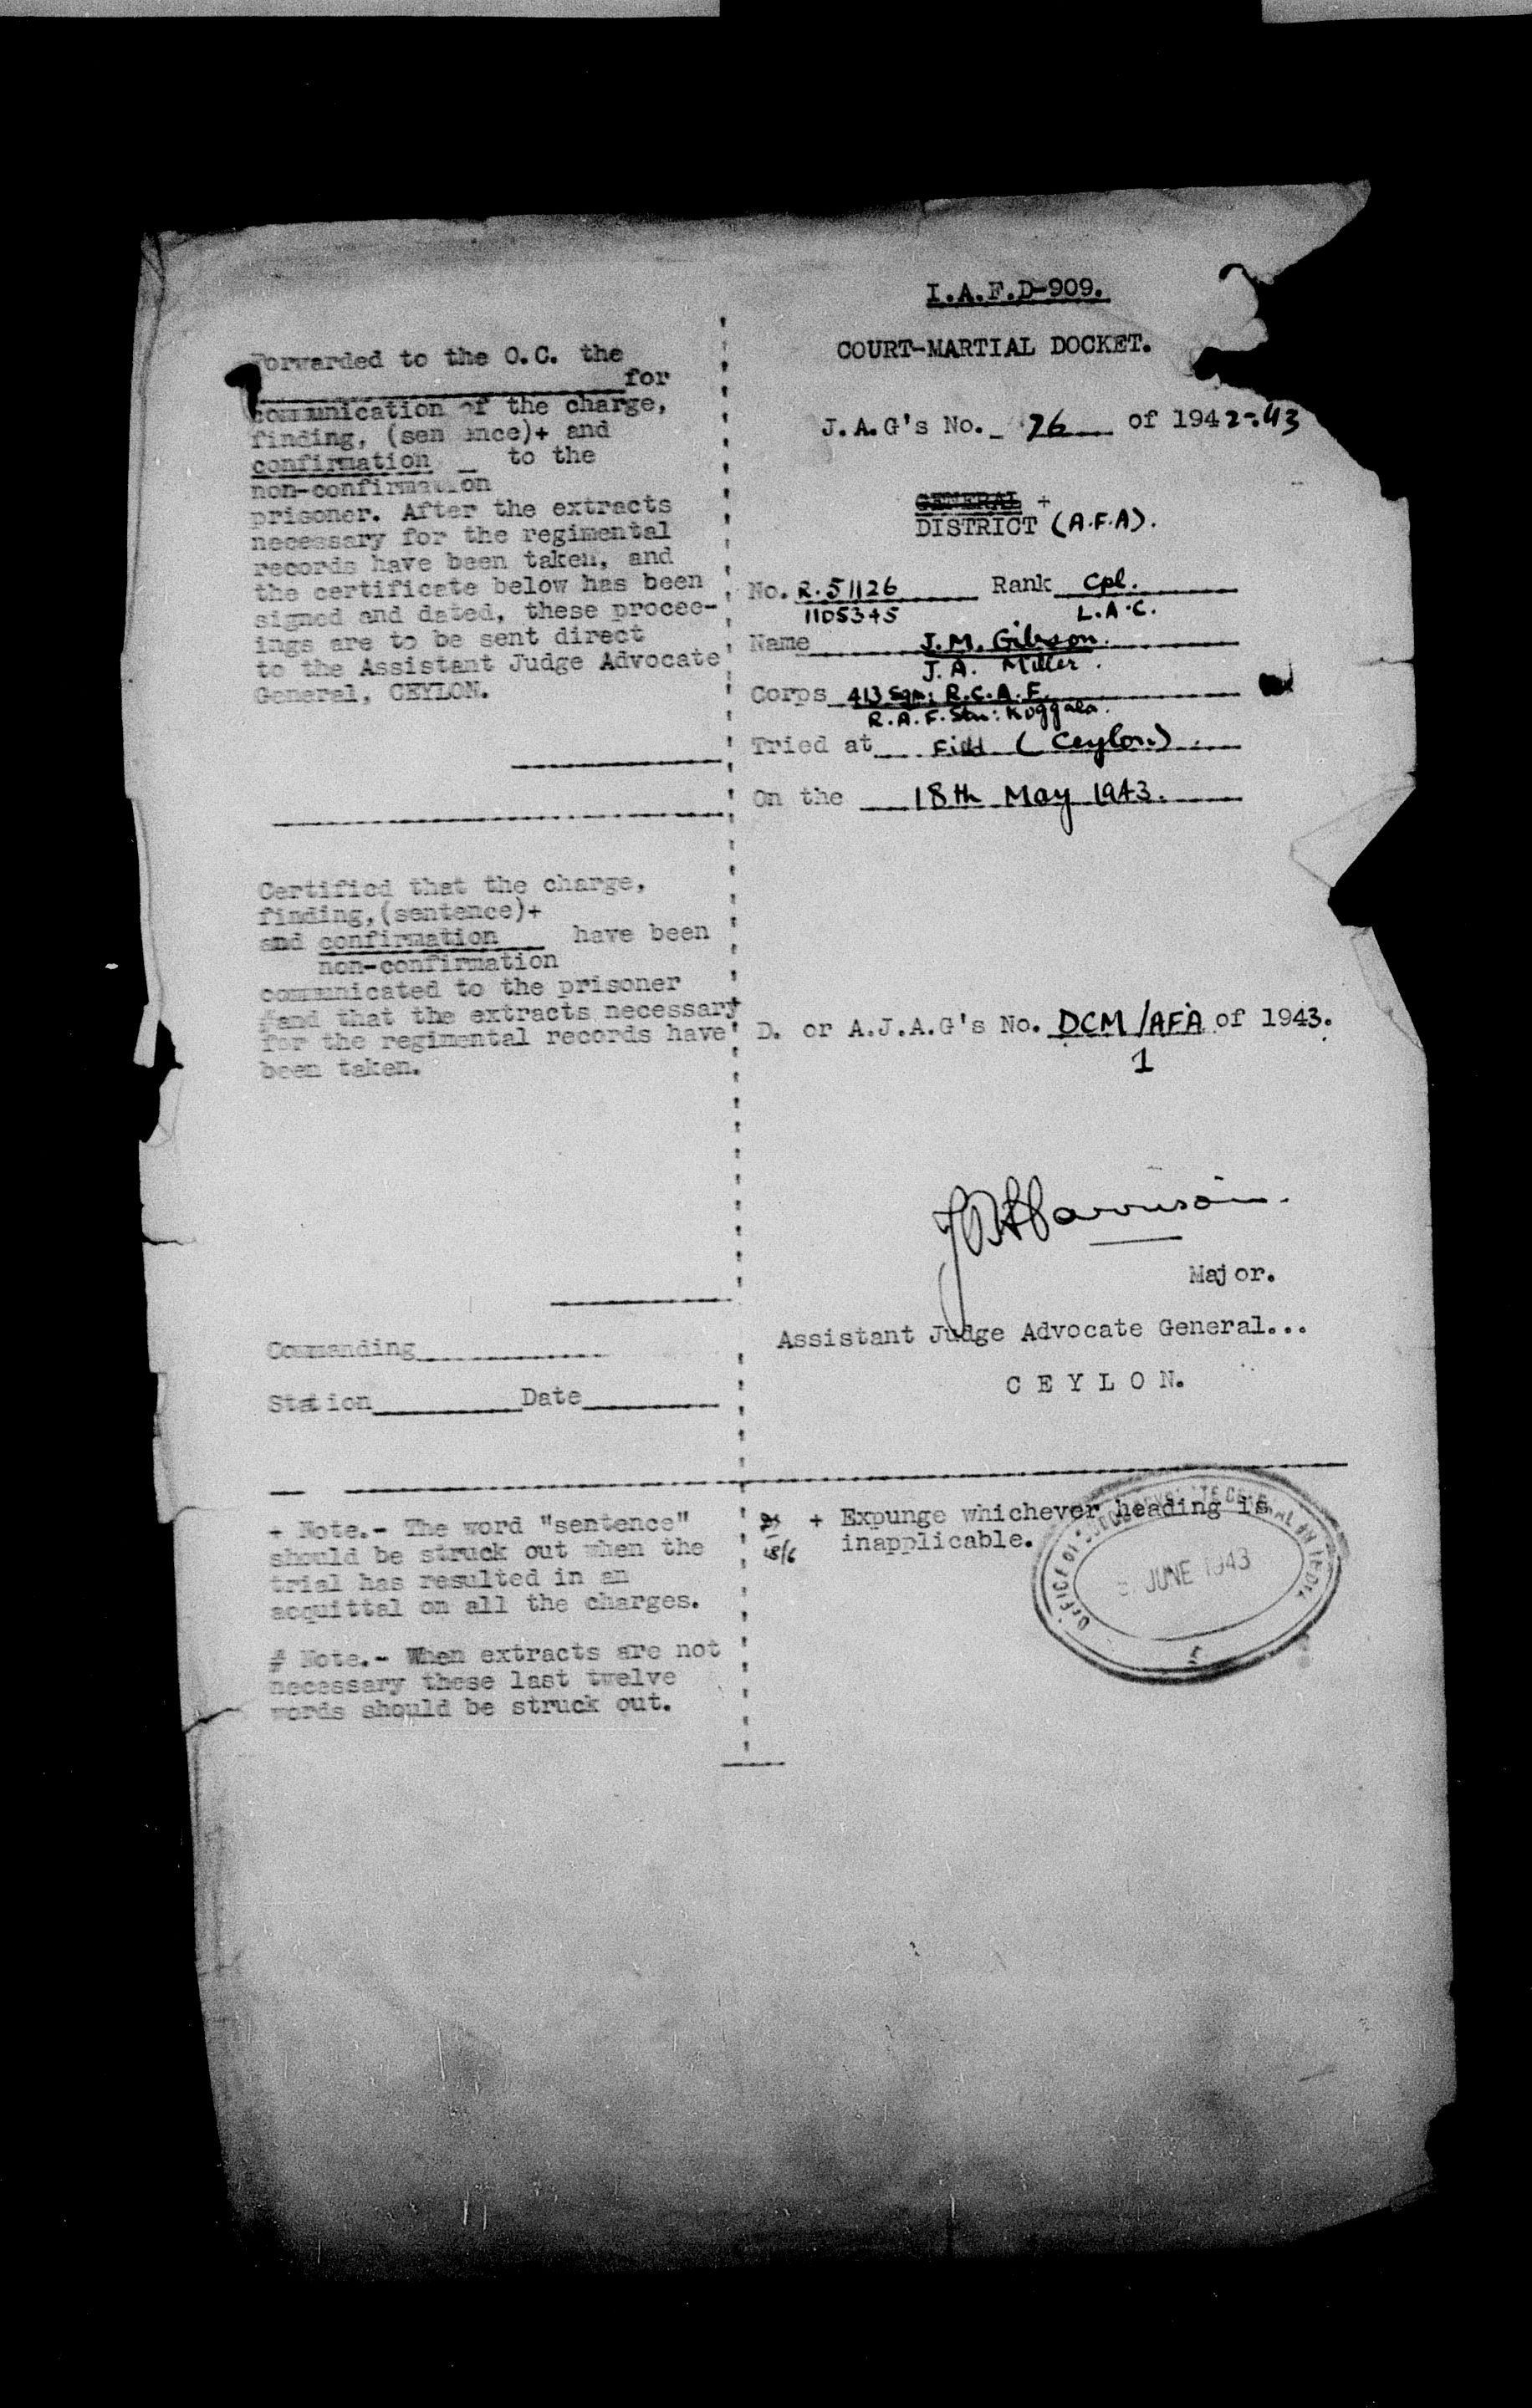 I.A.F.D-909.
COURT-MARTIAL DOCKET.
J.A.G's No. 76 of 1942-43
GENERAL +
DISTRICT (A.F.A).
No. R.51126 Rank Cpl.
1105345 L.A.C.
Name J.M. Gibson.
J.A. Miller.
Corps 413 Sqn: R.C.A.F.
R.A.F. Stn: Koggala.
Tried at Field (Ceylon).
On the 18th May 1943.
D. or A.J.A.G's No. DCM/AFA of 1943.
1
Major.
Assistant Judge Advocate General...
CEYLON.
+ Expunge whichever heading is
inapplicable.
JUNE 1943
Forwarded to the O.C. the
for
communication of the charge,
finding, (sentence)+ and
confirmation to the
non-confirmation
prisoner. After the extracts
necessary for the regimental
records have been taken, and
the certificate below has been
signed and dated, these procee-
ings are to be sent direct
to the Assistant Judge Advocate
General, CEYLON.
Certified that the charge,
finding,(sentence)+
and confirmation have been
non-confirmation
communicated to the prisoner
#and that the extracts necessary
for the regimental records have
been taken.
Commanding
Station Date
+ Note.- The word "sentence"
should be struck out when the
trial has resulted in an
acquittal on all the charges.
# Note.- When extracts are not
necessary these last twelve
words should be struck out.